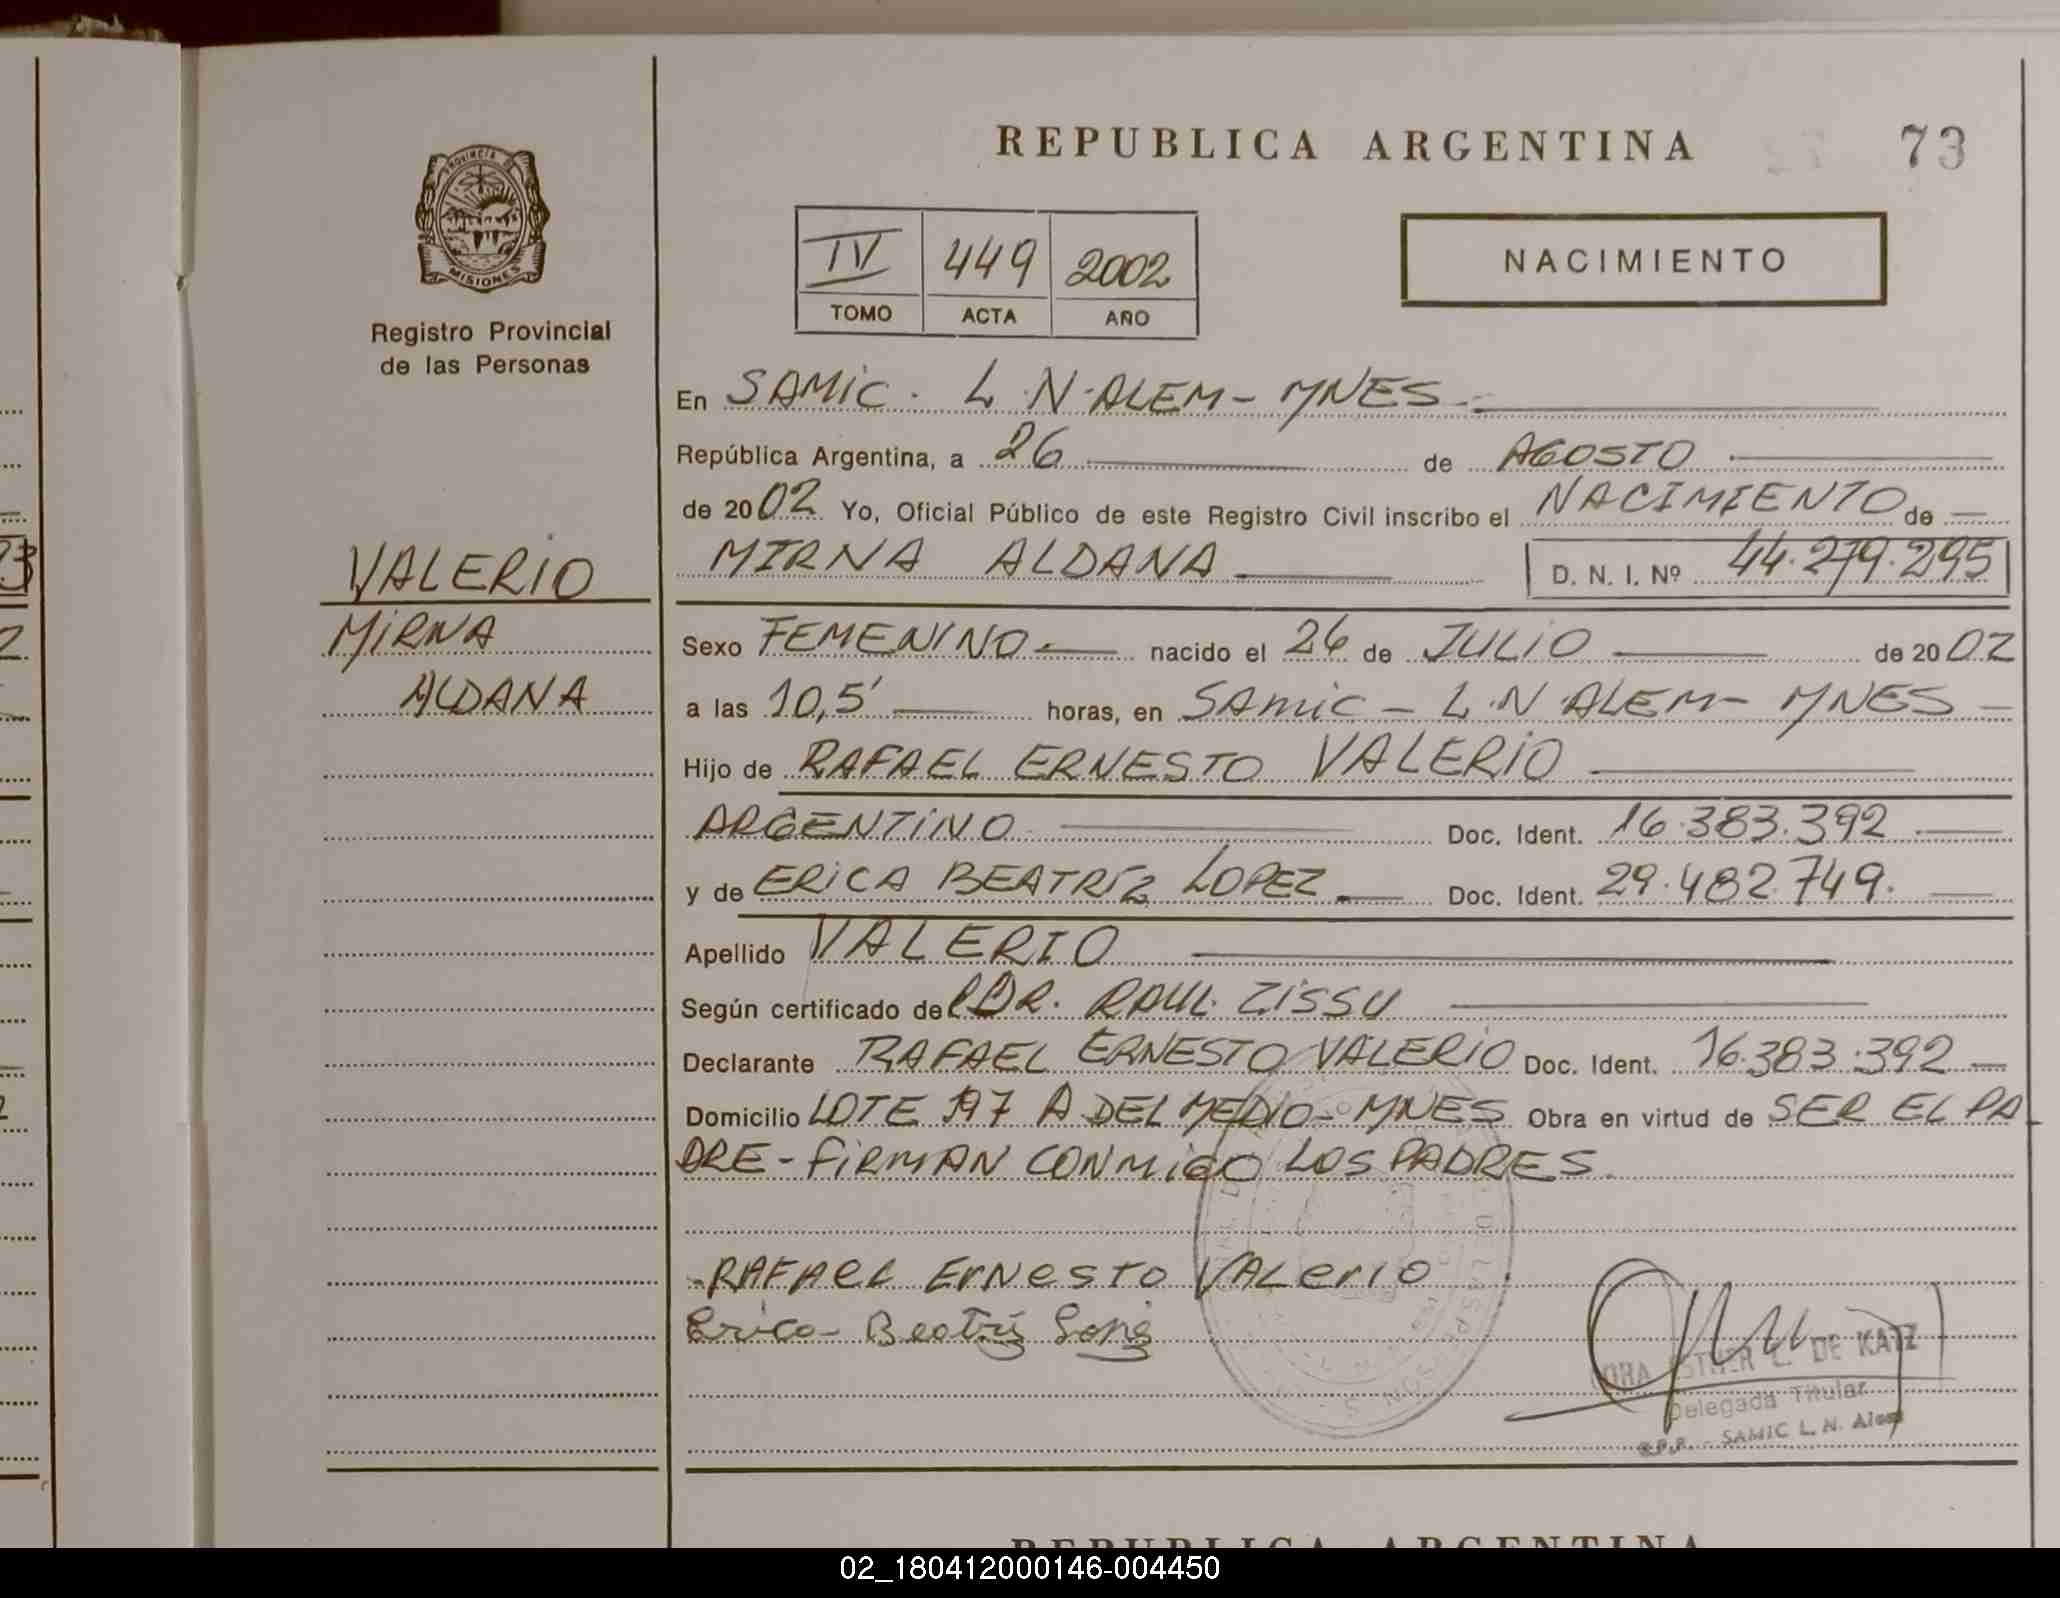 REPUBLICA ARGENTINA 73
PROVINCIA DE
MISIONES
Registro Provincial
de las Personas
IV 449 2002
TOMO ACTA AÑO
NACIMIENTO
En SAMIC. L.N. ALEM - MNES
República Argentina, a 26 de AGOSTO
de 2002 Yo, Oficial Público de este Registro Civil inscribo el NACIMIENTO de
MIRNA ALDANA D. N. I. Nº 44.279.295
VALERIO
MIRNA
ALDANA
Sexo FEMENINO nacido el 26 de JULIO de 2002
a las 10,5' horas, en SAMIC - L.N. ALEM - MNES
Hijo de RAFAEL ERNESTO VALERIO
ARGENTINO Doc. Ident. 16.383.392
y de ERICA BEATRÍZ LOPEZ Doc. Ident. 29.482.749.
Apellido VALERIO
Según certificado del DR. RAUL ZISSU
Declarante RAFAEL ERNESTO VALERIO Doc. Ident. 16.383.392
Domicilio LOTE 197 A DEL MEDIO - MNES Obra en virtud de SER EL PA
DRE - FIRMAN CONMIGO LOS PADRES.
RAFAEL ERNESTO VALERIO
Erica Beatriz
ESTHER L. DE KATZ
Delegada Titular
R.P.P. - SAMIC L. N. Alem
REPUBLICA ARGENTINA
02_180412000146-004450